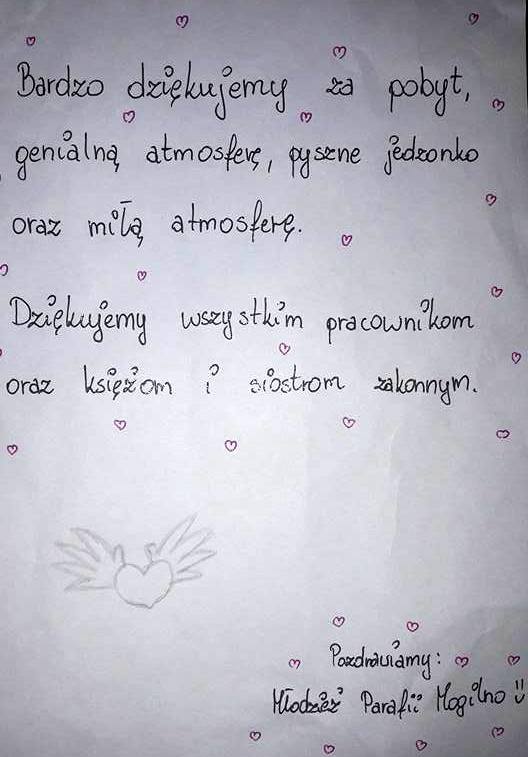 Bardzo dziękujemy za pobyt,
genialną atmosferę, pyszne jedzonko
oraz miłą atmosferę.
Dziękujemy wszystkim pracownikom
oraz księżom i siostrom zakonnym.
Pozdrawiamy:
Młodzież Parafii Mogilno